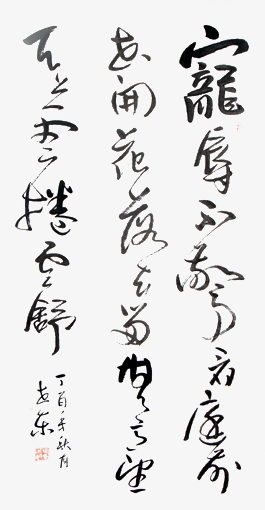 寵辱不驚看庭前
花開花落去留無意望
天上雲捲雲舒
丁酉年秋月